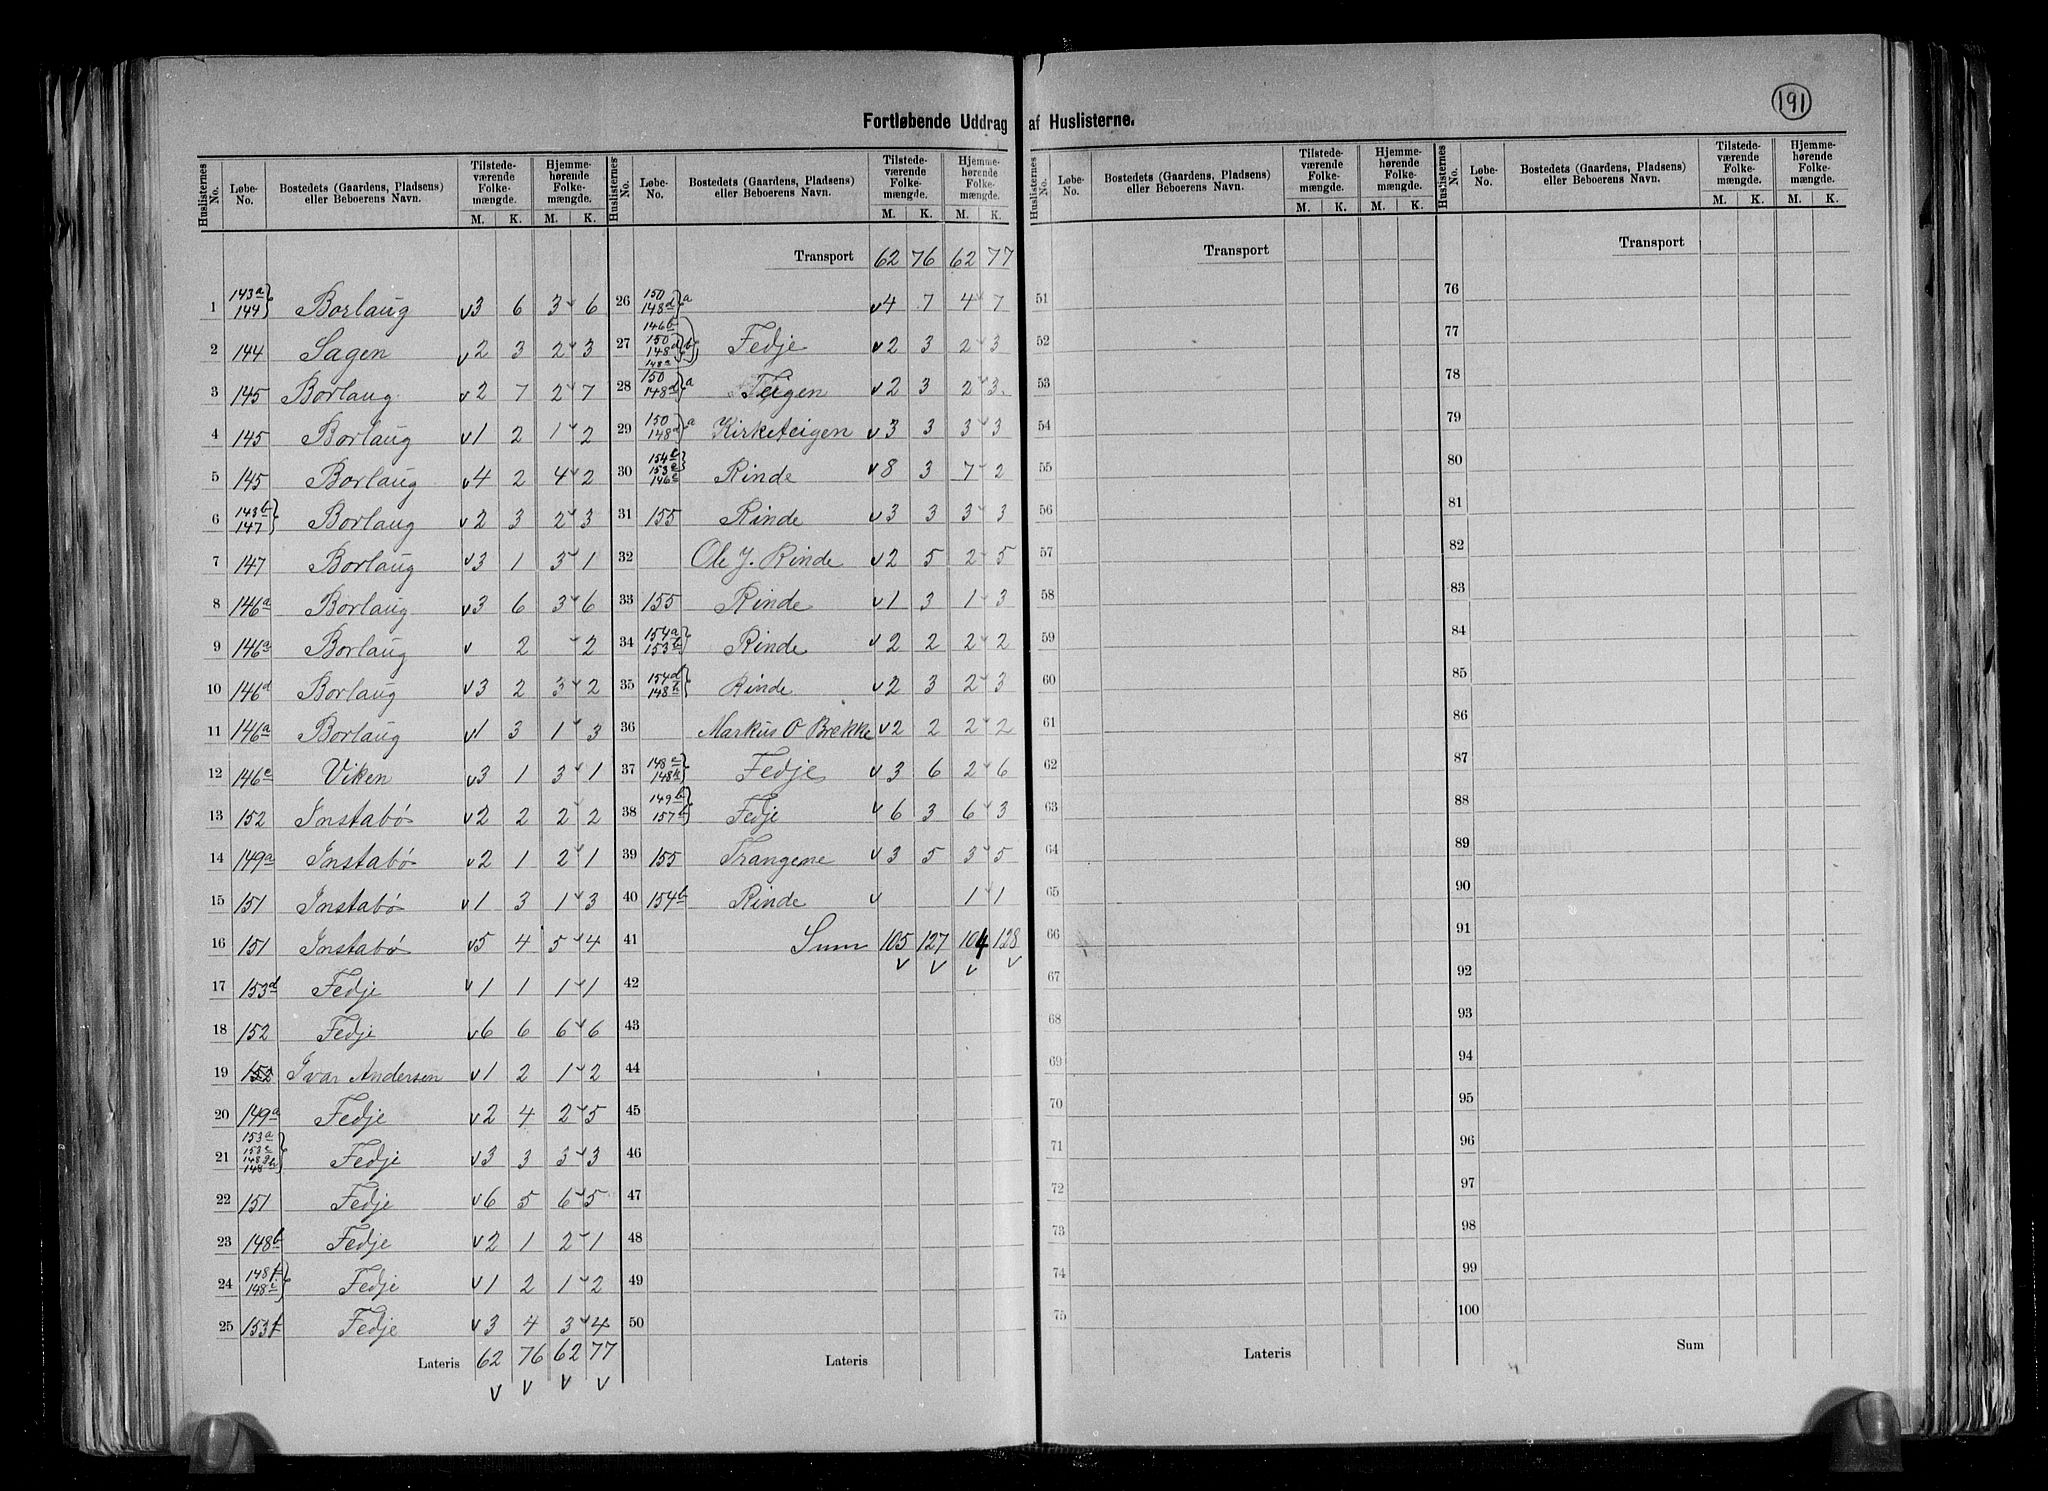 191
Fortløbende Uddrag af Huslisterne.
Huslisternes No. Løbe-No. Bostedets (Gaardens, Pladsens) eller Beboerens Navn. Tilstedeværende Folkemængde. M. K. Hjemmehørende Folkemængde. M. K.
1 143a 144 Borlaug v3 6 3 6
2 144 Sagen v2 3 2 3
3 145 Borlaug v2 7 2 7
4 145 Borlaug v1 2 1 2
5 145 Borlaug v4 2 4 2
6 143b 147 Borlaug v2 3 2 3
7 147 Borlaug v3 1 3 1
8 146a Borlaug v3 6 3 6
9 146a Borlaug v 2 2
10 146d Borlaug v3 2 3 2
11 146a Borlaug v1 3 1 3
12 146e Viken v3 1 3 1
13 152 Instabø v2 2 2 2
14 149a Instabø v2 1 2 1
15 151 Instabø v1 3 1 3
16 151 Instabø v5 4 5 4
17 153d Fedje v1 1 1 1
18 152 Fedje v6 6 6 6
19 152 Ivar Andersen v1 2 1 2
20 149a Fedje v2 4 2 5
21 153a 153c 148g 148h Fedje v3 3 3 3
22 151 Fedje v6 5 6 5
23 148b Fedje v2 1 2 1
24 148f 148c Fedje v1 2 1 2
25 153f Fedje v3 4 3 4
Lateris 62 76 62 77
v v v v
Huslisternes No. Løbe-No. Bostedets (Gaardens, Pladsens) eller Beboerens Navn. Tilstedeværende Folkemængde. M. K. Hjemmehørende Folkemængde. M. K.
Transport 62 76 62 77
26 150 148d a v4 7 4 7
27 146b 150 148d b 148a Fedje v2 3 2 3
28 150 148d a Teigen v2 3 2 3
29 150 148d a Kirketeigen v3 3 3 3
30 154c 153e 146c Rinde v8 3 7 2
31 155 Rinde v3 3 3 3
32 Ole J. Rinde v2 5 2 5
33 155 Rinde v1 3 1 3
34 154a 153b Rinde v2 2 2 2
35 154d 148h Rinde v2 3 2 3
36 Markus O Brekke v2 2 2 2
37 148e 148k Fedje v3 6 2 6
38 149b 157b Fedje v6 3 6 3
39 155 Trangene v3 5 3 5
40 154b Rinde v 1 1
41 Sum 105 127 104 128
v v v v
42
43
44
45
46
47
48
49
50
Lateris
Huslisternes No. Løbe-No. Bostedets (Gaardens, Pladsens) eller Beboerens Navn. Tilstedeværende Folkemængde. M. K. Hjemmehørende Folkemængde. M. K.
Transport
51
52
53
54
55
56
57
58
59
60
61
62
63
64
65
66
67
68
69
70
71
72
73
74
75
Lateris
Huslisternes No. Løbe-No. Bostedets (Gaardens, Pladsens) eller Beboerens Navn. Tilstedeværende Folkemængde. M. K. Hjemmehørende Folkemængde. M. K.
Transport
76
77
78
79
80
81
82
83
84
85
86
87
88
89
90
91
92
93
94
95
96
97
98
99
100
Sum